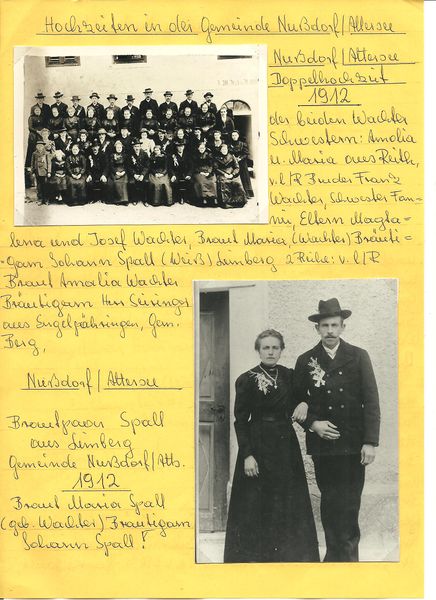 Hochzeiten in der Gemeinde Nußdorf/Attersee
Nußdorf/Attersee
Doppelhochzeit
1912
der beiden Wachter
Schwestern: Amalia
u. Maria aus Reith,
v.l/R Bruder Franz
Wachter, Schwester Fan-
ni, Eltern Magda-
lena und Josef Wachter, Braut Maria, (Wachter) Bräuti-
gam Johann Spall (Weiß) Limberg 2 Reihe: v.l/R
Braut Amalia Wachter
Bräutigam Herr
aus Gem.
Berg,
Nußdorf/Attersee
Brautpaar Spall
aus Limberg
Gemeinde Nußdorf/Atts.
1912
Braut Maria Spall
(geb. Wachter) Bräutigam
Johann Spall!